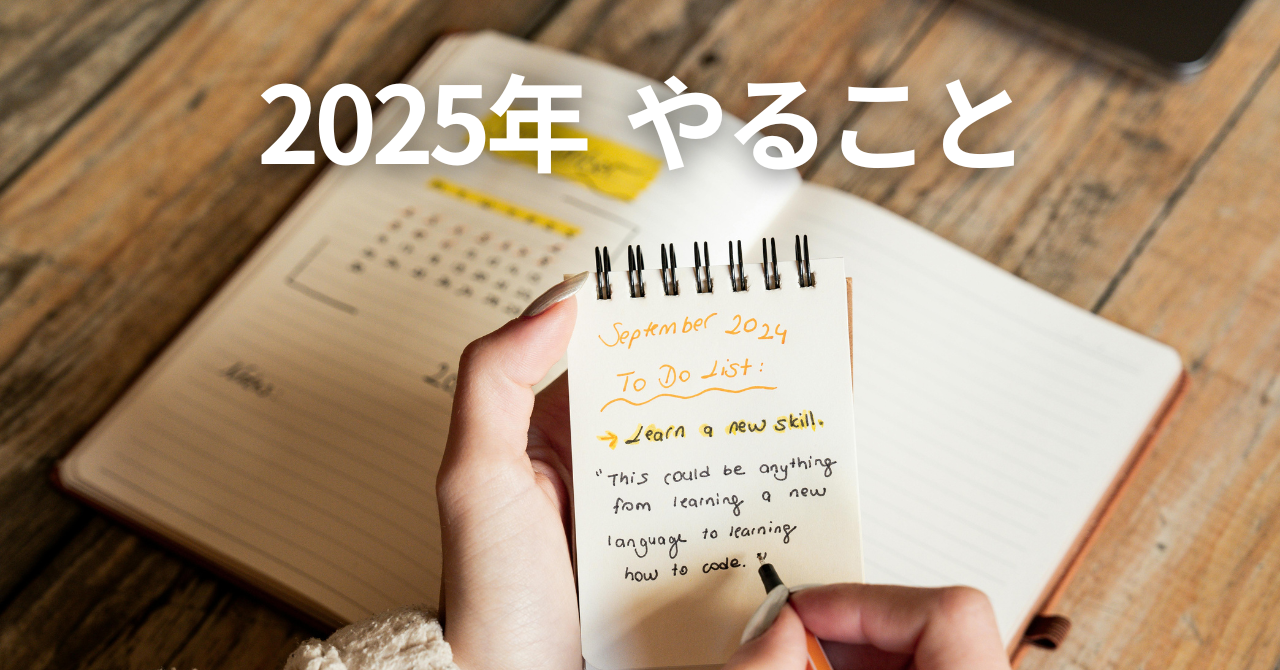 2025年 やること
September 2024
To Do List:
→ Learn a new skill.
"This could be anything
from learning a new
language to learning
how to code."